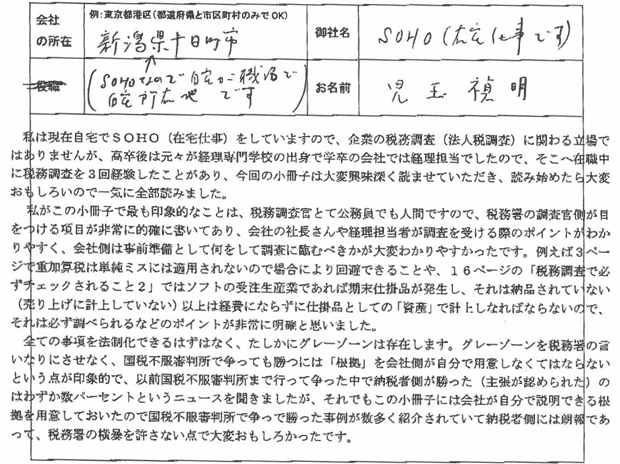 会社の所在 例:東京都港区(都道府県と市区町村のみでOK) 新潟県十日町市 御社名 SOHO(在宅仕事です)
役職 (SOHOなので自宅が職場で自宅所在地です お名前 児玉禎明
私は現在自宅でSOHO(在宅仕事)をしていますので、企業の税務調査(法人税調査)に関わる立場で
はありませんが、高卒後は元々が経理専門学校の出身で学卒の会社では経理担当でしたので、そこへ在職中
に税務調査を3回経験したことがあり、今回の小冊子は大変興味深く読ませていただき、読み始めたら大変
おもしろいので一気に全部読みました。
私がこの小冊子で最も印象的なことは、税務調査官とて公務員でも人間ですので、税務署の調査官側が目
をつける項目が非常に的確に書いてあり、会社の社長さんや経理担当者が調査を受ける際のポイントがわか
りやすく、会社側は事前準備として何をして調査に臨むべきかが大変わかりやすかったです。例えば3ペー
ジで重加算税は単純ミスには適用されないので場合により回避できることや、16ページの「税務調査で必
ずチェックされること2」ではソフトの受注生産業であれば期末仕掛品が発生し、それは納品されていない
(売り上げに計上していない)以上は経費にならずに仕掛品としての「資産」で計上しなねばならないので、
それは必ず調べられるなどのポイントが非常に明確と思いました。
全ての事項を法制化できるはずはなく、たしかにグレーゾーンは存在します。グレーゾーンを税務署の言
いなりにさせなく、国税不服審判所で争っても勝つには「根拠」を会社側が自分で用意しなくてはならない
という点が印象的で、以前国税不服審判所まで行って争った中で納税者側が勝った(主張が認められた)の
はわずか数パーセントというニュースを聞きましたが、それでもこの小冊子には会社が自分で説明できる根
拠を用意しておいたので国税不服審判所で争って勝った事例が数多く紹介されていて納税者側には朗報であ
って、税務署の横暴を許さない点で大変おもしろかったです。